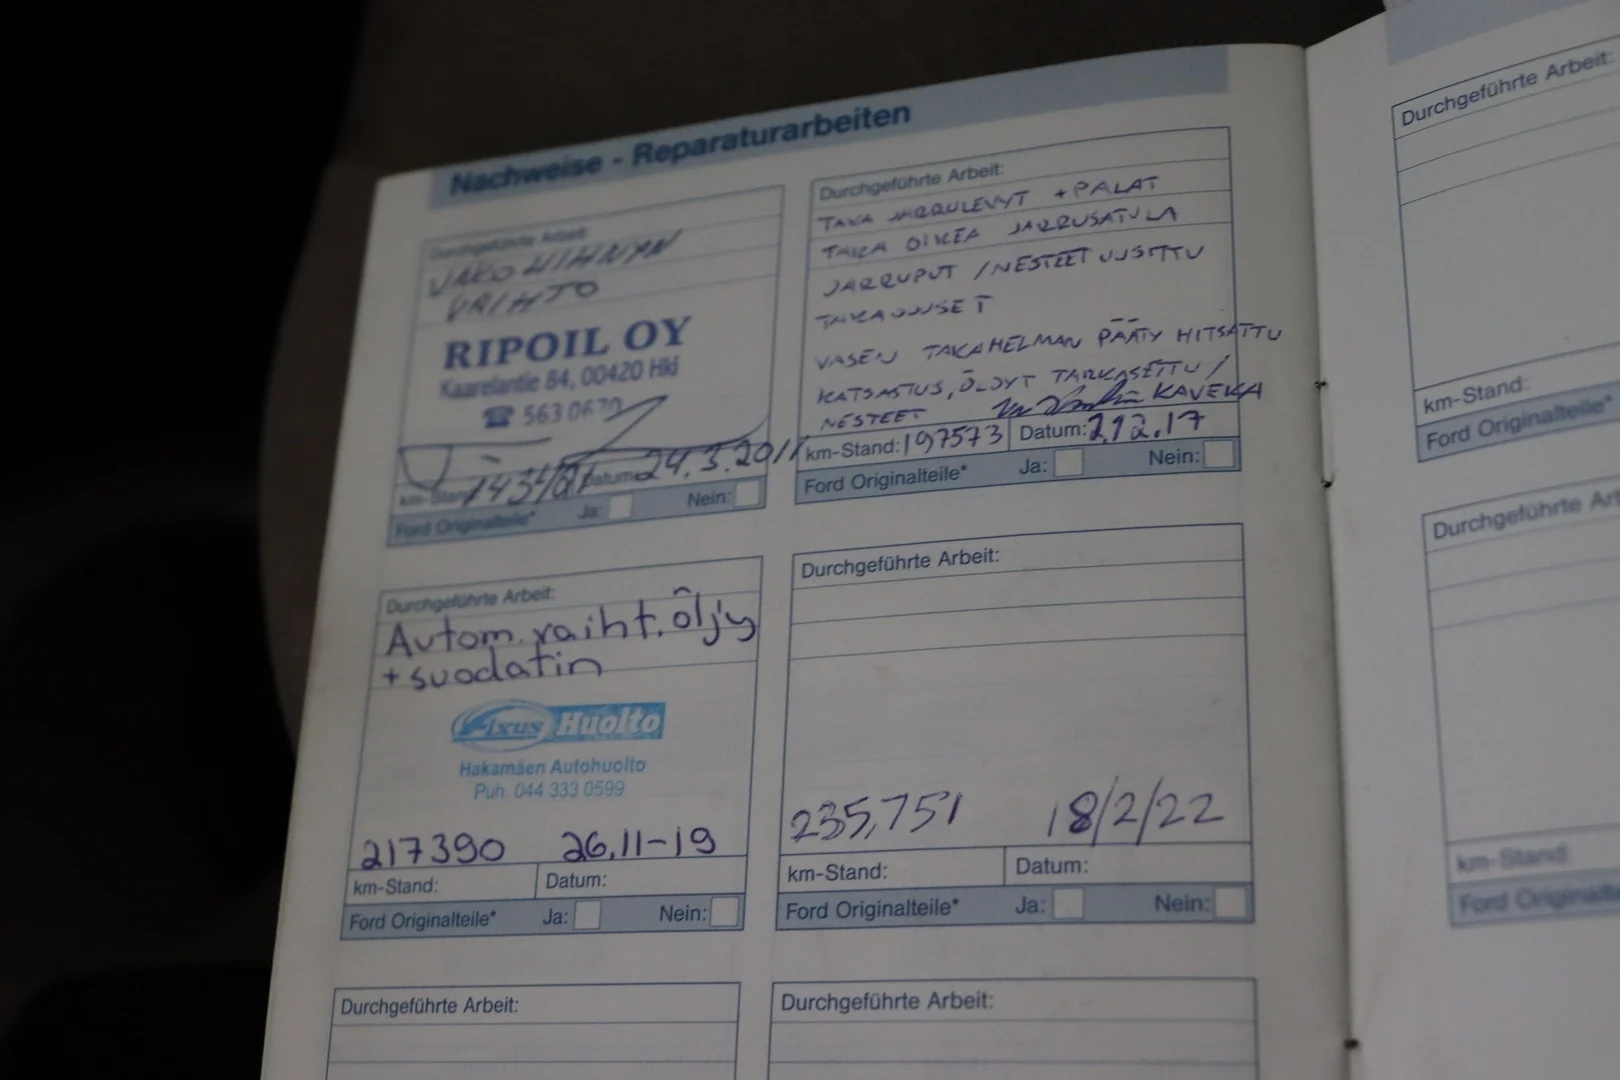 Nachweise - Reparaturarbeiten
Durchgeführte Arbeit:
JAKO HIHNAN
VAIHTO
RIPOIL OY
Kaarelantie 84, 00420 Hki
☎ 563 0670
km-Stand: Datum: 24.3.2011
Ford Originalteile* Ja: Nein:
Durchgeführte Arbeit:
TAKA JARRULEVYT + PALAT
TAKA OIKEA JARRUSATULA
JARRUPUT / NESTEET UUSITTU
TAKAJOUSET
VASEN TAKAHELMAN PÄÄTY HITSATTU
KATSASTUS, ÖLJYT TARKASETTU /
NESTEET KAVEKA
km-Stand: 197573 Datum: 2.12.17
Ford Originalteile* Ja: Nein:
Durchgeführte Arbeit:
Autom.vaiht.öljy
+ suodatin
Fixus Huolto
Hakamäen Autohuolto
Puh. 044 333 0599
217390 26.11-19
km-Stand: Datum:
Ford Originalteile* Ja: Nein:
Durchgeführte Arbeit:
235,751 18/2/22
km-Stand: Datum:
Ford Originalteile* Ja: Nein:
Durchgeführte Arbeit:
Durchgeführte Arbeit:
Durchgeführte Arbeit:
km-Stand:
Ford Originalteile*
Durchgeführte
km-Stand:
Ford